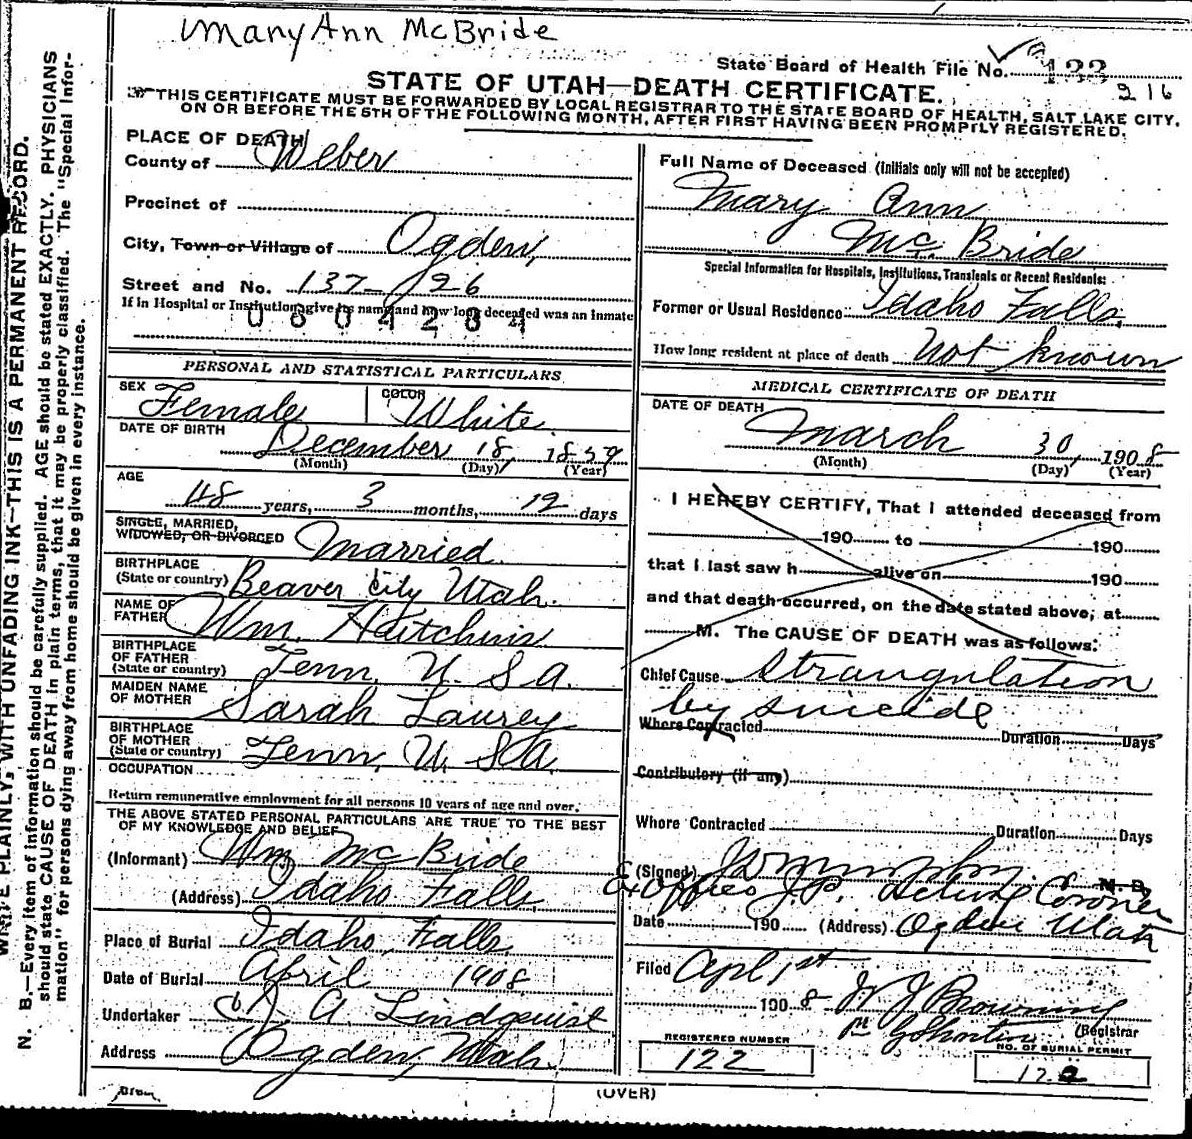 Mary Ann McBride
State Board of Health File No. 133
216
STATE OF UTAH—DEATH CERTIFICATE.
THIS CERTIFICATE MUST BE FORWARDED BY LOCAL REGISTRAR TO THE STATE BOARD OF HEALTH, SALT LAKE CITY,
ON OR BEFORE THE 5TH OF THE FOLLOWING MONTH, AFTER FIRST HAVING BEEN PROMPTLY REGISTERED.
PLACE OF DEATH
County of Weber
Precinct of
City, Town or Village of Ogden,
Street and No. 137- 26
If in Hospital or Institution, give its name and how long deceased was an inmate
0 8 0 4 2 8 4
PERSONAL AND STATISTICAL PARTICULARS
SEX Female
COLOR White
DATE OF BIRTH
December 18, 1859
(Month) (Day) (Year)
AGE
48 years, 3 months, 12 days
SINGLE, MARRIED,
WIDOWED, OR DIVORCED Married
BIRTHPLACE
(State or country) Beaver City Utah.
NAME OF
FATHER Wm. Hutchins
BIRTHPLACE
OF FATHER
(State or country) Tenn. U. S. A.
MAIDEN NAME
OF MOTHER Sarah Laurey
BIRTHPLACE
OF MOTHER
(State or country) Tenn. U. S. A.
OCCUPATION
Return remunerative employment for all persons 10 years of age and over.
THE ABOVE STATED PERSONAL PARTICULARS ARE TRUE TO THE BEST
OF MY KNOWLEDGE AND BELIEF
(Informant) Wm McBride
(Address) Idaho Falls
Place of Burial Idaho Falls.
Date of Burial April 1908
Undertaker J. A. Lindquist
Address Ogden, Utah.
Full Name of Deceased (Initials only will not be accepted)
Mary Ann
McBride
Special Information for Hospitals, Institutions, Transients or Recent Residents:
Former or Usual Residence Idaho Falls,
How long resident at place of death Not known
MEDICAL CERTIFICATE OF DEATH
DATE OF DEATH
March 30, 1908
(Month) (Day) (Year)
I HEREBY CERTIFY, That I attended deceased from
190 to 190
that I last saw h alive on 190
and that death occurred, on the date stated above, at
M. The CAUSE OF DEATH was as follows:
Chief Cause Strangulation
by suicide
Where Contracted Duration Days
Contributory (if any)
Where Contracted Duration Days
(Signed) M. D.
Ex Officio J.P. Acting Coroner
Date 190 (Address) Ogden Utah
Filed Apl 1st
1908 Browning
(Registrar
REGISTERED NUMBER
122
NO. OF BURIAL PERMIT
122
(OVER)
N. B.—Every item of information should be carefully supplied. AGE should be stated EXACTLY. PHYSICIANS
should state CAUSE OF DEATH in plain terms, that it may be properly classified. The "Special Infor-
mation" for persons dying away from home should be given in every instance.
WRITE PLAINLY, WITH UNFADING INK—THIS IS A PERMANENT RECORD.